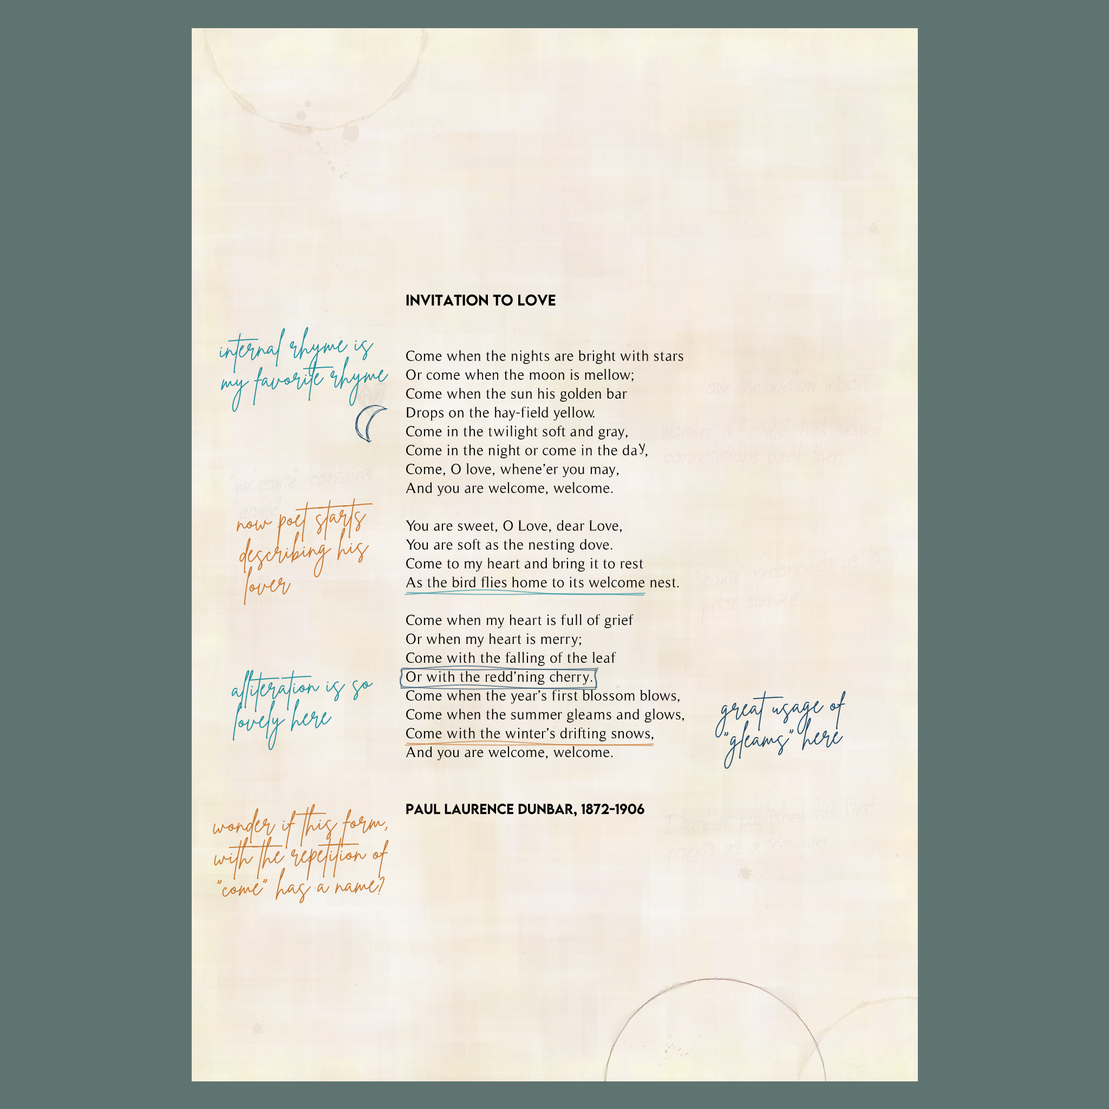 INVITATION TO LOVE
internal rhyme is
my favorite rhyme
Come when the nights are bright with stars
Or come when the moon is mellow;
Come when the sun his golden bar
Drops on the hay-field yellow.
Come in the twilight soft and gray,
Come in the night or come in the day,
Come, O love, whene'er you may,
And you are welcome, welcome.
now poet starts
describing his
lover
You are sweet, O Love, dear Love,
You are soft as the nesting dove.
Come to my heart and bring it to rest
As the bird flies home to its welcome nest.
Come when my heart is full of grief
Or when my heart is merry;
Come with the falling of the leaf
Or with the redd'ning cherry.
Come when the year's first blossom blows,
Come when the summer gleams and glows,
Come with the winter's drifting snows,
And you are welcome, welcome.
alliteration is so
lovely here
great usage of
"gleams" here
PAUL LAURENCE DUNBAR, 1872-1906
wonder if this form,
with the repetition of
"come" has a name?